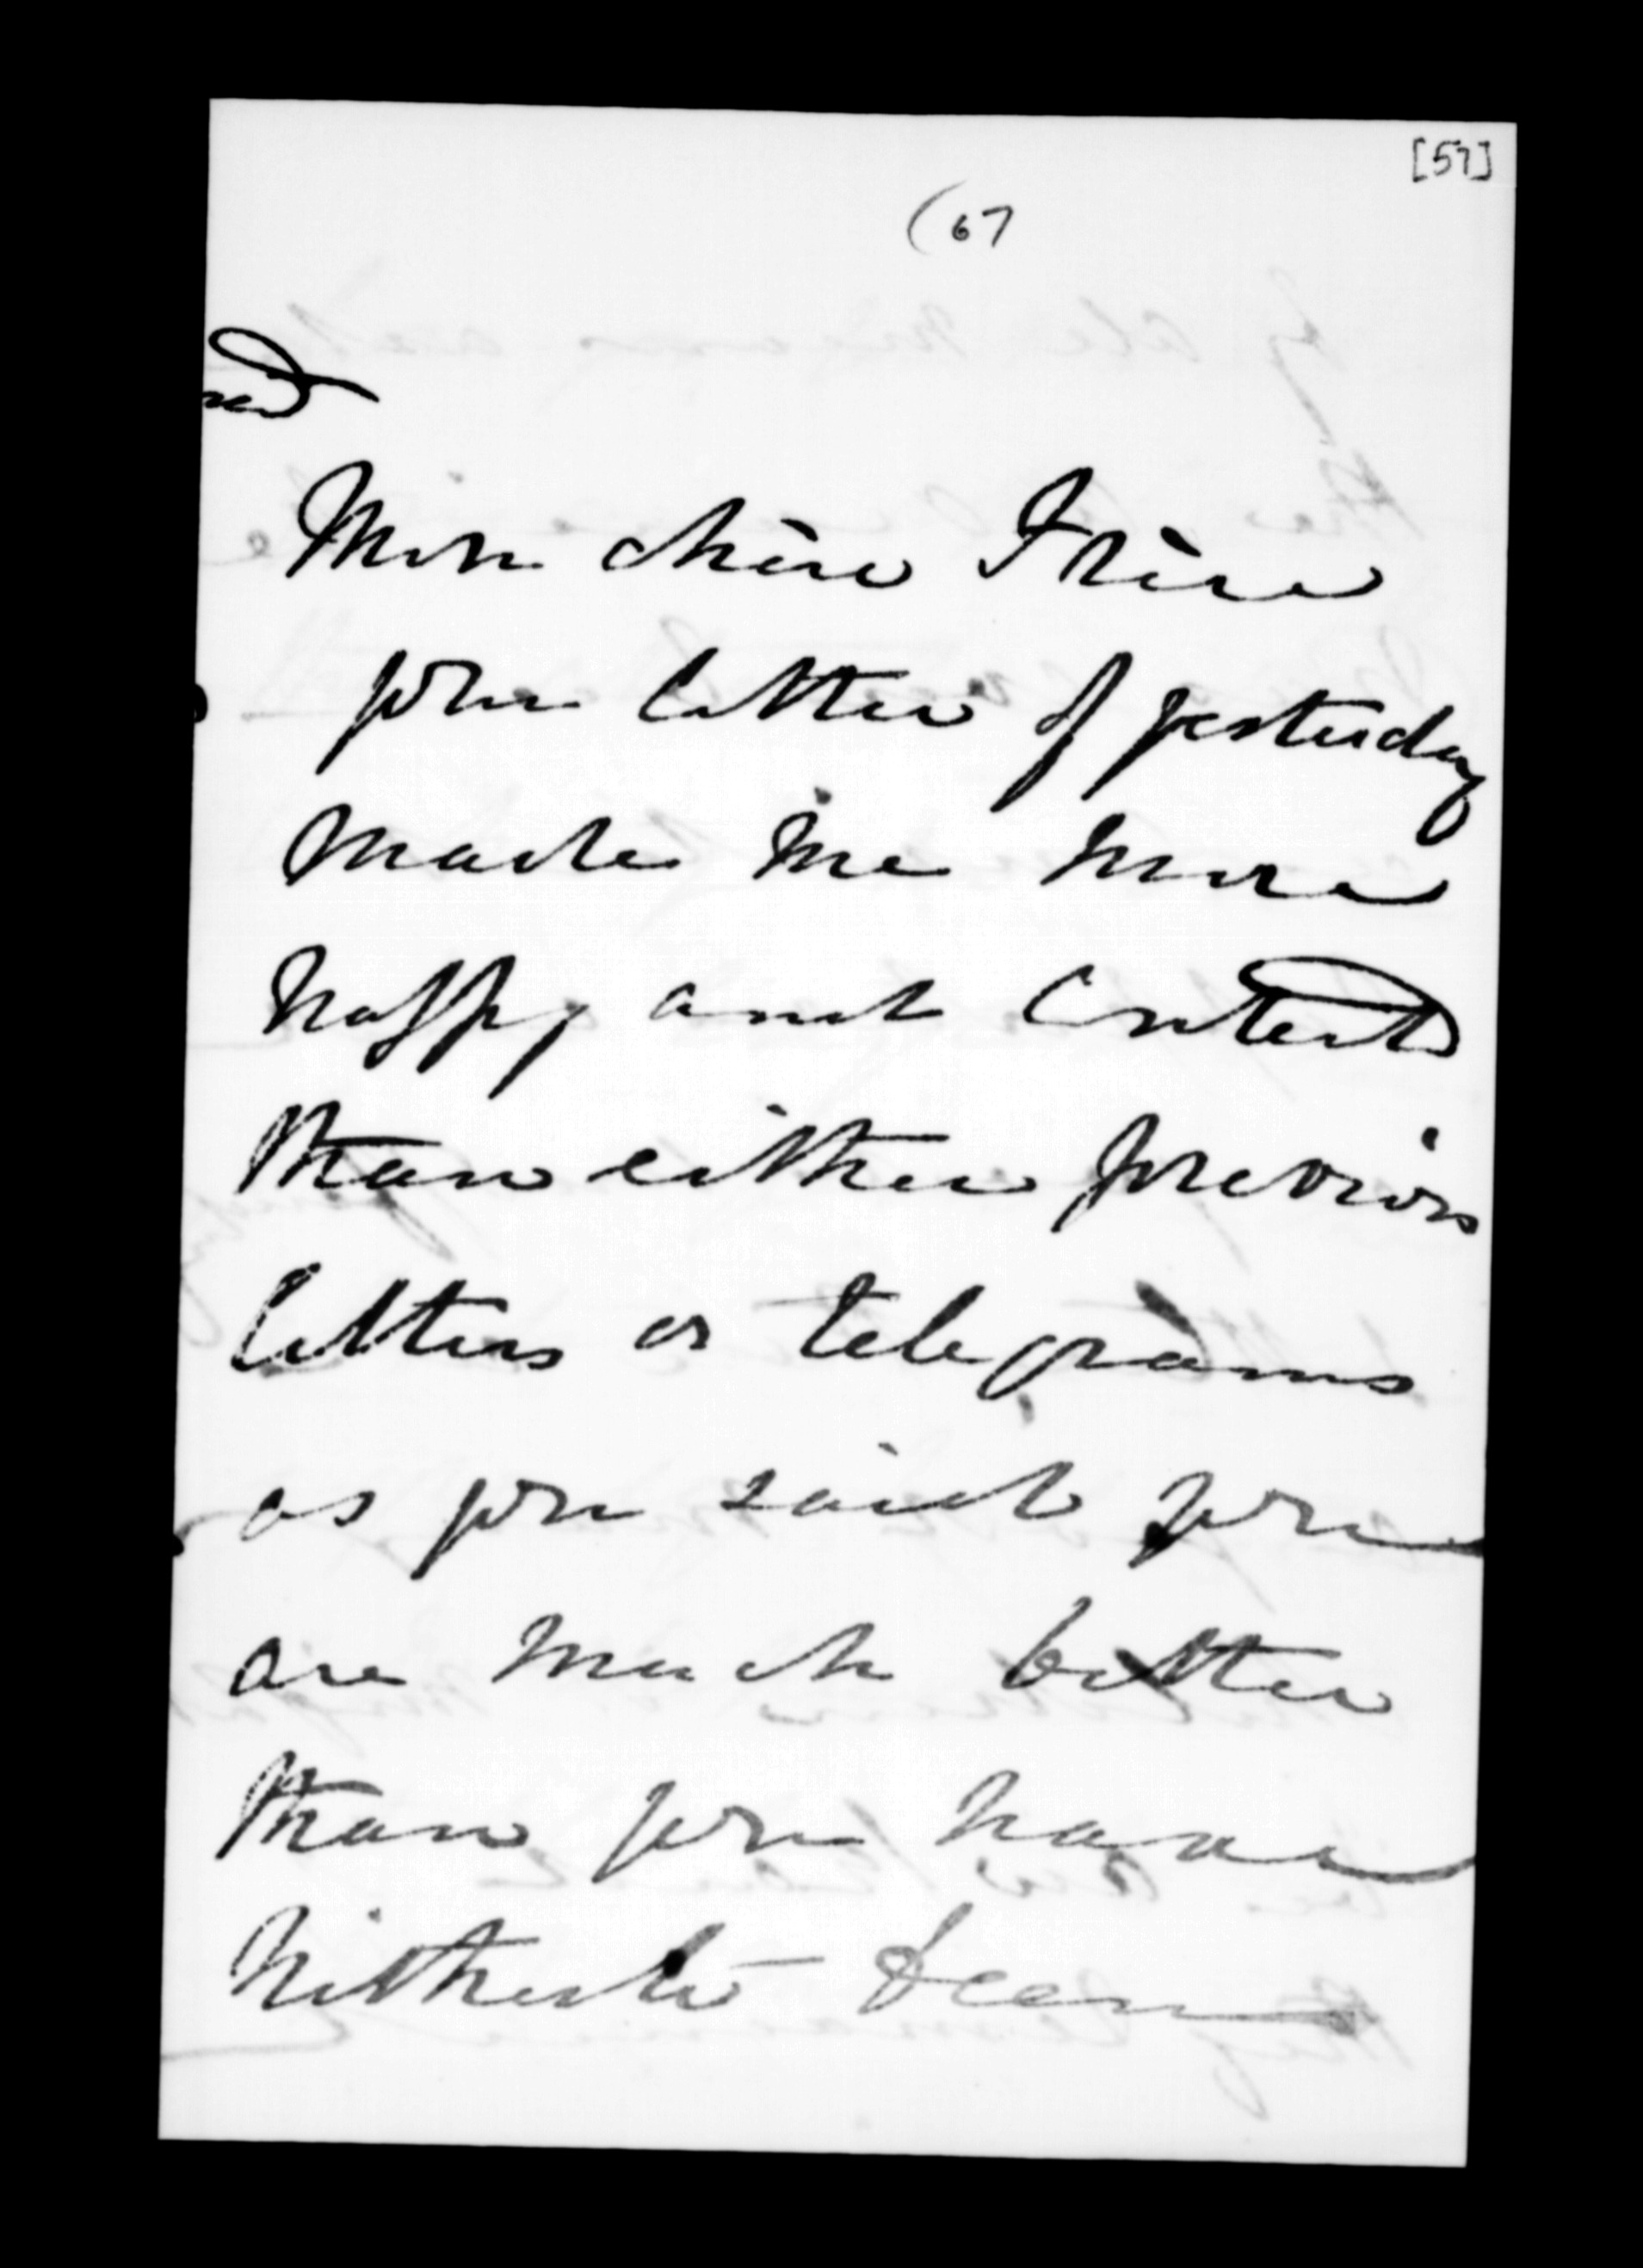 [57]
(67
Mon chère Frère
your letter of yesterday
made me more
happy and content
than either previous
letters or telegrams
as you said you
are much better
than you have
hitherto been